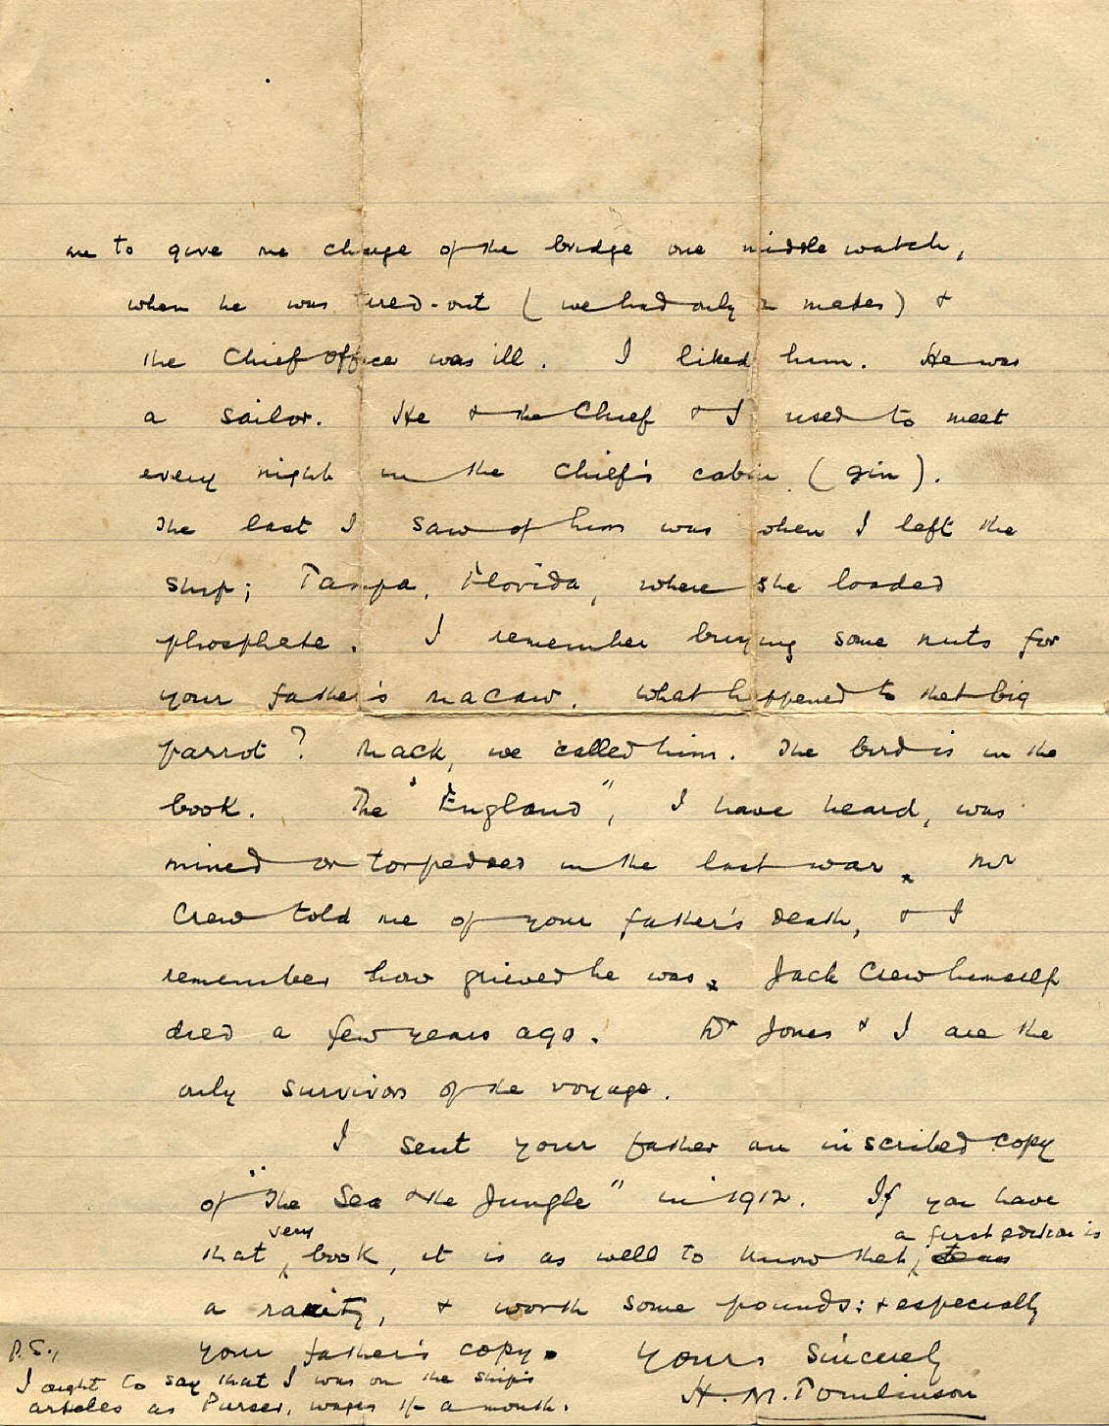 me to give me charge of the bridge one middle watch,
when he was tired-out (we had only 2 mates) &
the Chief Officer was ill. I liked him. He was
a sailor. He & the Chief & I used to meet
every night in the Chief's cabin (gin).
The last I saw of him was when I left the
ship; Tampa, Florida, where she loaded
phosphate. I remember buying some nuts for
your father's macaw. What happened to that big
parrot? Mack, we called him. The bird is in the
book. The "England", I have heard, was
mined or torpedoed in the last war. Mr
Crew told me of your father's death, & I
remember how grieved he was. Jack Crew himself
died a few years ago. Dr Jones & I are the
only survivors of the voyage.
I sent your father an inscribed copy
of "The Sea & the Jungle" in 1912. If you have
that very book, it is as well to know that a first edition is
a rarity, & worth some pounds: & especially
your father's copy. Yours Sincerely
H. M. Tomlinson
P.S.,
I ought to say that I was on the ship's
articles as Purser, wages 1/- a month.